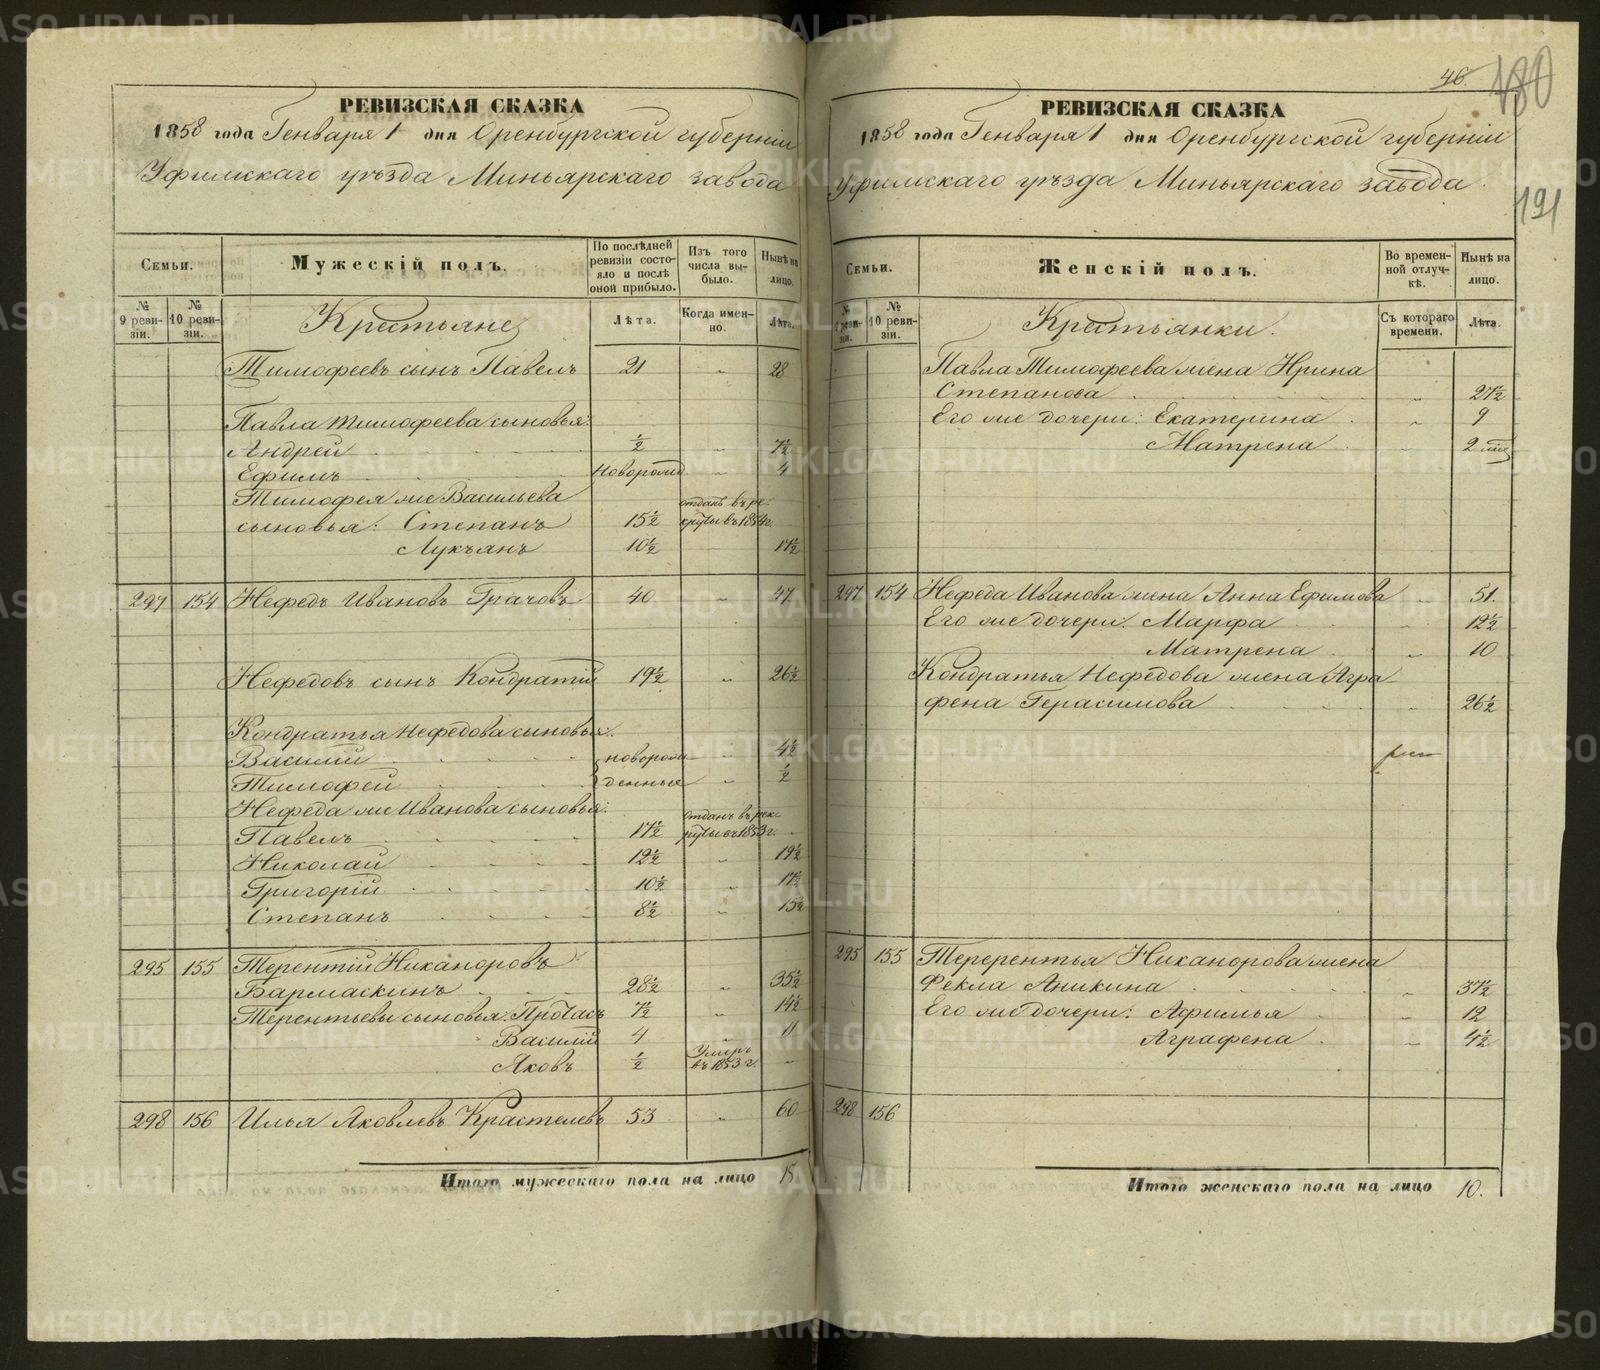 РЕВИЗСКАЯ СКАЗКА
1858 года Генваря 1 дня Оренбургской губерніи
Уфимскаго уѣзда Миньярскаго завода
Семьи.
Мужескій полъ.
По послѣдней ревизіи состояло и послѣ оной прибыло.
Изъ того числа выбыло.
Нынѣ на лицо.
№ 9 ревизіи.
№ 10 ревизіи.
Крестьяне
Лѣта.
Когда именно.
Лѣта.
Тимофеевъ сынъ Павелъ 21 „ 28
Павла Тимофеева сыновья:
Андрей ½ „ 7½
Ефимъ новорожд „ 4
Тимофея же Васильева
сыновья: Степанъ 15½ отданъ въ рекруты въ 1854 г.
Лукъянъ 10½ 17½
297 154 Нефедъ Ивановъ Грачовъ 40 „ 47
Нефедовъ сынъ Кондратій 19½ „ 26½
Кондратья Нефедова сыновья:
Василий новорож- „ 4½
Тимофей денные „ ½
Нефеда же Иванова сыновья:
Павелъ 17½ отданъ въ рекруты въ 1853 г. „
Николай 12½ „ 19½
Григорій 10½ „ 17½
Степанъ 8½ „ 15½
295 155 Терентій Никаноровъ
Бармаскинъ 28½ „ 35½
Терентьевы сыновья: Протасъ 7½ „ 14½
Василій 4 „ 11
Яковъ ½ Умеръ въ 1853 г. „
298 156 Илья Яковлевъ Крастелевъ 53 „ 60
Итого мужескаго пола на лицо 15
46.
180
191
РЕВИЗСКАЯ СКАЗКА
1858 года Генваря 1 дня Оренбургской губерніи
Уфимскаго уѣзда Миньярскаго завода.
Семьи.
Женскій полъ.
Во временной отлучкѣ.
Нынѣ на лицо.
№ 9 ревизіи.
№ 10 ревизіи.
Крестьянки.
Съ котораго времени.
Лѣта.
Павла Тимофеева жена Ирина
Степанова „ 27½
Его же дочери: Екатерина „ 9
Матрена „ 2
297 154 Нефеда Иванова жена Анна Ефимова „ 51.
Его же дочери: Марфа „ 12½
Матрена „ 10
Кондратья Нефедова жена Агра-
фена Герасимова „ 26½
295 155 Терерентья Никанорова жена
Фекла Аникина „ 37½
Его же дочери: Афимья „ 12
Аграфена „ 4½
298 156
Итого женскаго пола на лицо 10.
METRIKI.GASO-URAL.RU